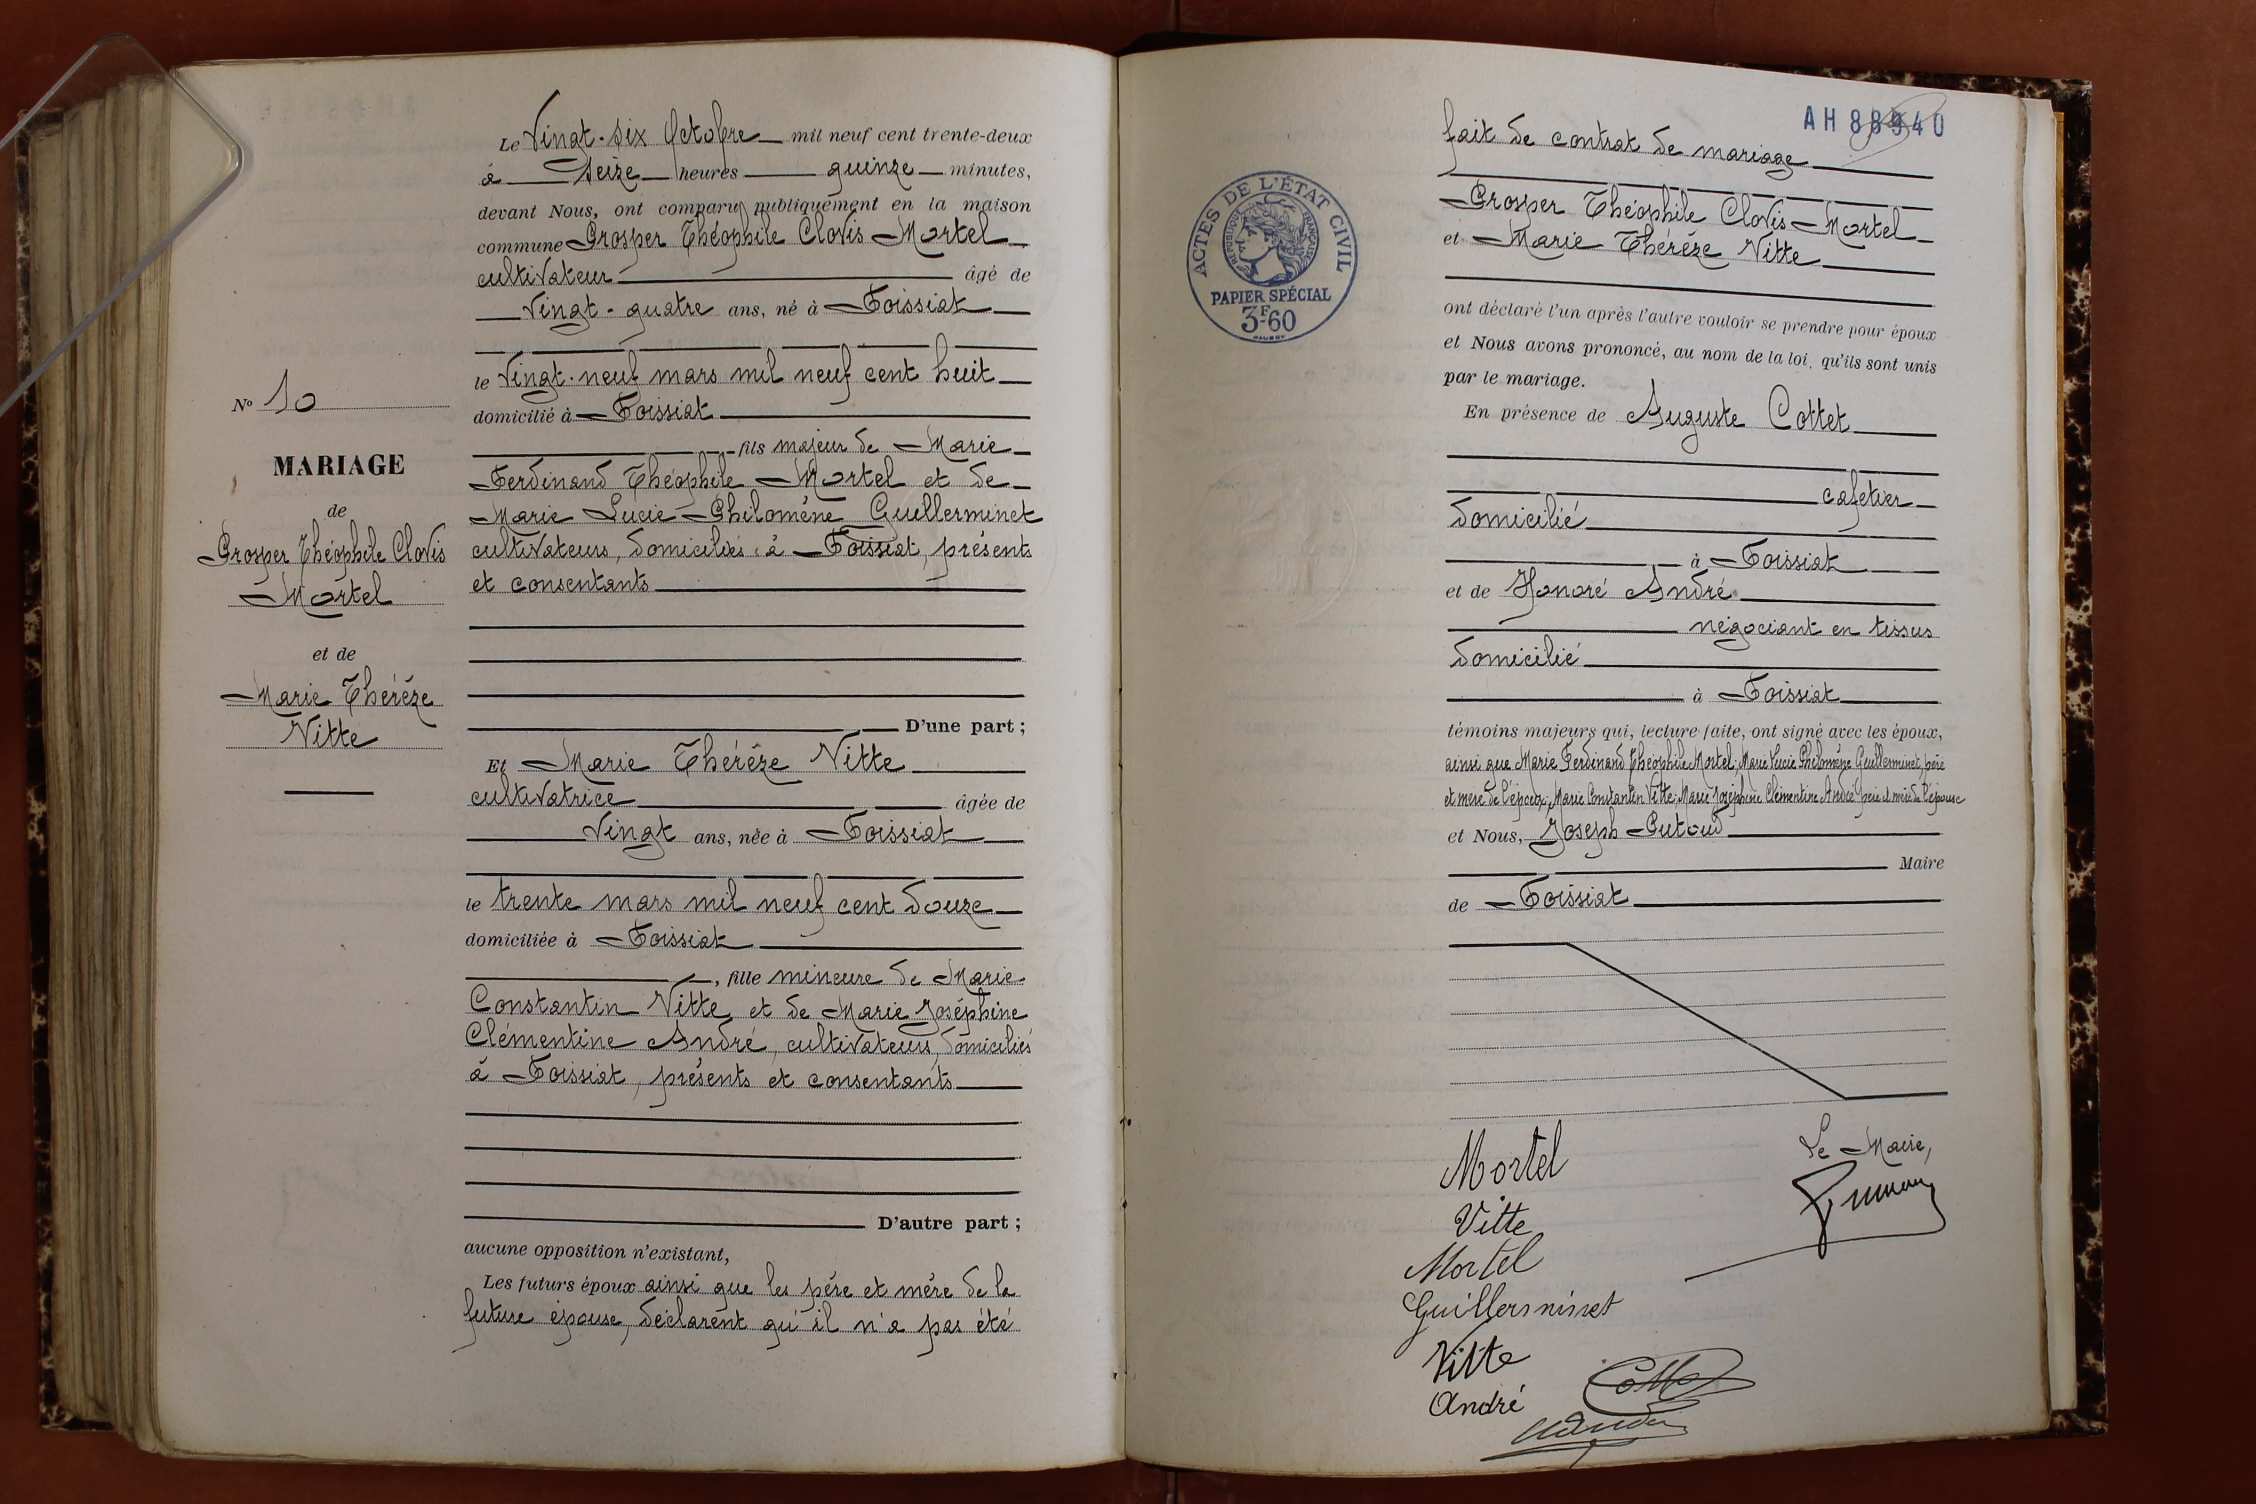 Le Vingt-six Octobre mil neuf cent trente-deux
à seize heures quinze minutes,
devant Nous, ont comparu publiquement en la maison
commune Prosper Théophile Clovis Mortel
cultivateur âgé de
vingt-quatre ans, né à Foissiat
le vingt-neuf mars mil neuf cent huit
domicilié à Foissiat
fils majeur de Marie
Ferdinand Théophile Mortel et de
Marie Lucie Philomène Guillerminet
cultivateurs, domiciliés à Foissiat, présents
et consentants
D'une part ;
Et Marie Thérèze Vitte
cultivatrice âgée de
vingt ans, née à Foissiat
le trente mars mil neuf cent douze
domiciliée à Foissiat
, fille mineure de Marie
Constantin Vitte et de Marie Joséphine
Clémentine André, cultivateurs, domiciliés
à Foissiat, présents et consentants
D'autre part ;
aucune opposition n'existant,
Les futurs époux ainsi que les père et mère de la
future épouse, déclarent qu'il n'a pas été
N° 10
MARIAGE
de
Prosper Théophile Clovis
Mortel
et de
Marie Thérèze
Vitte
AH 88940
fait de contrat de mariage
Prosper Théophile Clovis Mortel
et Marie Thérèze Vitte
ont déclaré l'un après l'autre vouloir se prendre pour époux
et Nous avons prononcé, au nom de la loi, qu'ils sont unis
par le mariage.
En présence de Auguste Cottet
cafetier
domicilié
à Foissiat
et de Honoré André
négociant en tissus
domicilié
à Foissiat
témoins majeurs qui, lecture faite, ont signé avec les époux,
ainsi que Marie Ferdinand Théophile Mortel, Marie Lucie Philomène Guillerminet, père
et mère de l'époux, Marie Constantin Vitte, Marie Joséphine Clémentine André père et mère de l'épouse
et Nous, Joseph Putoud
Maire
de Foissiat
ACTES DE L'ÉTAT CIVIL
RÉPUBLIQUE FRANÇAISE
PAPIER SPÉCIAL
3F-60
Mortel
Vitte
Mortel
Guillerminet
Vitte
André
Le Maire,